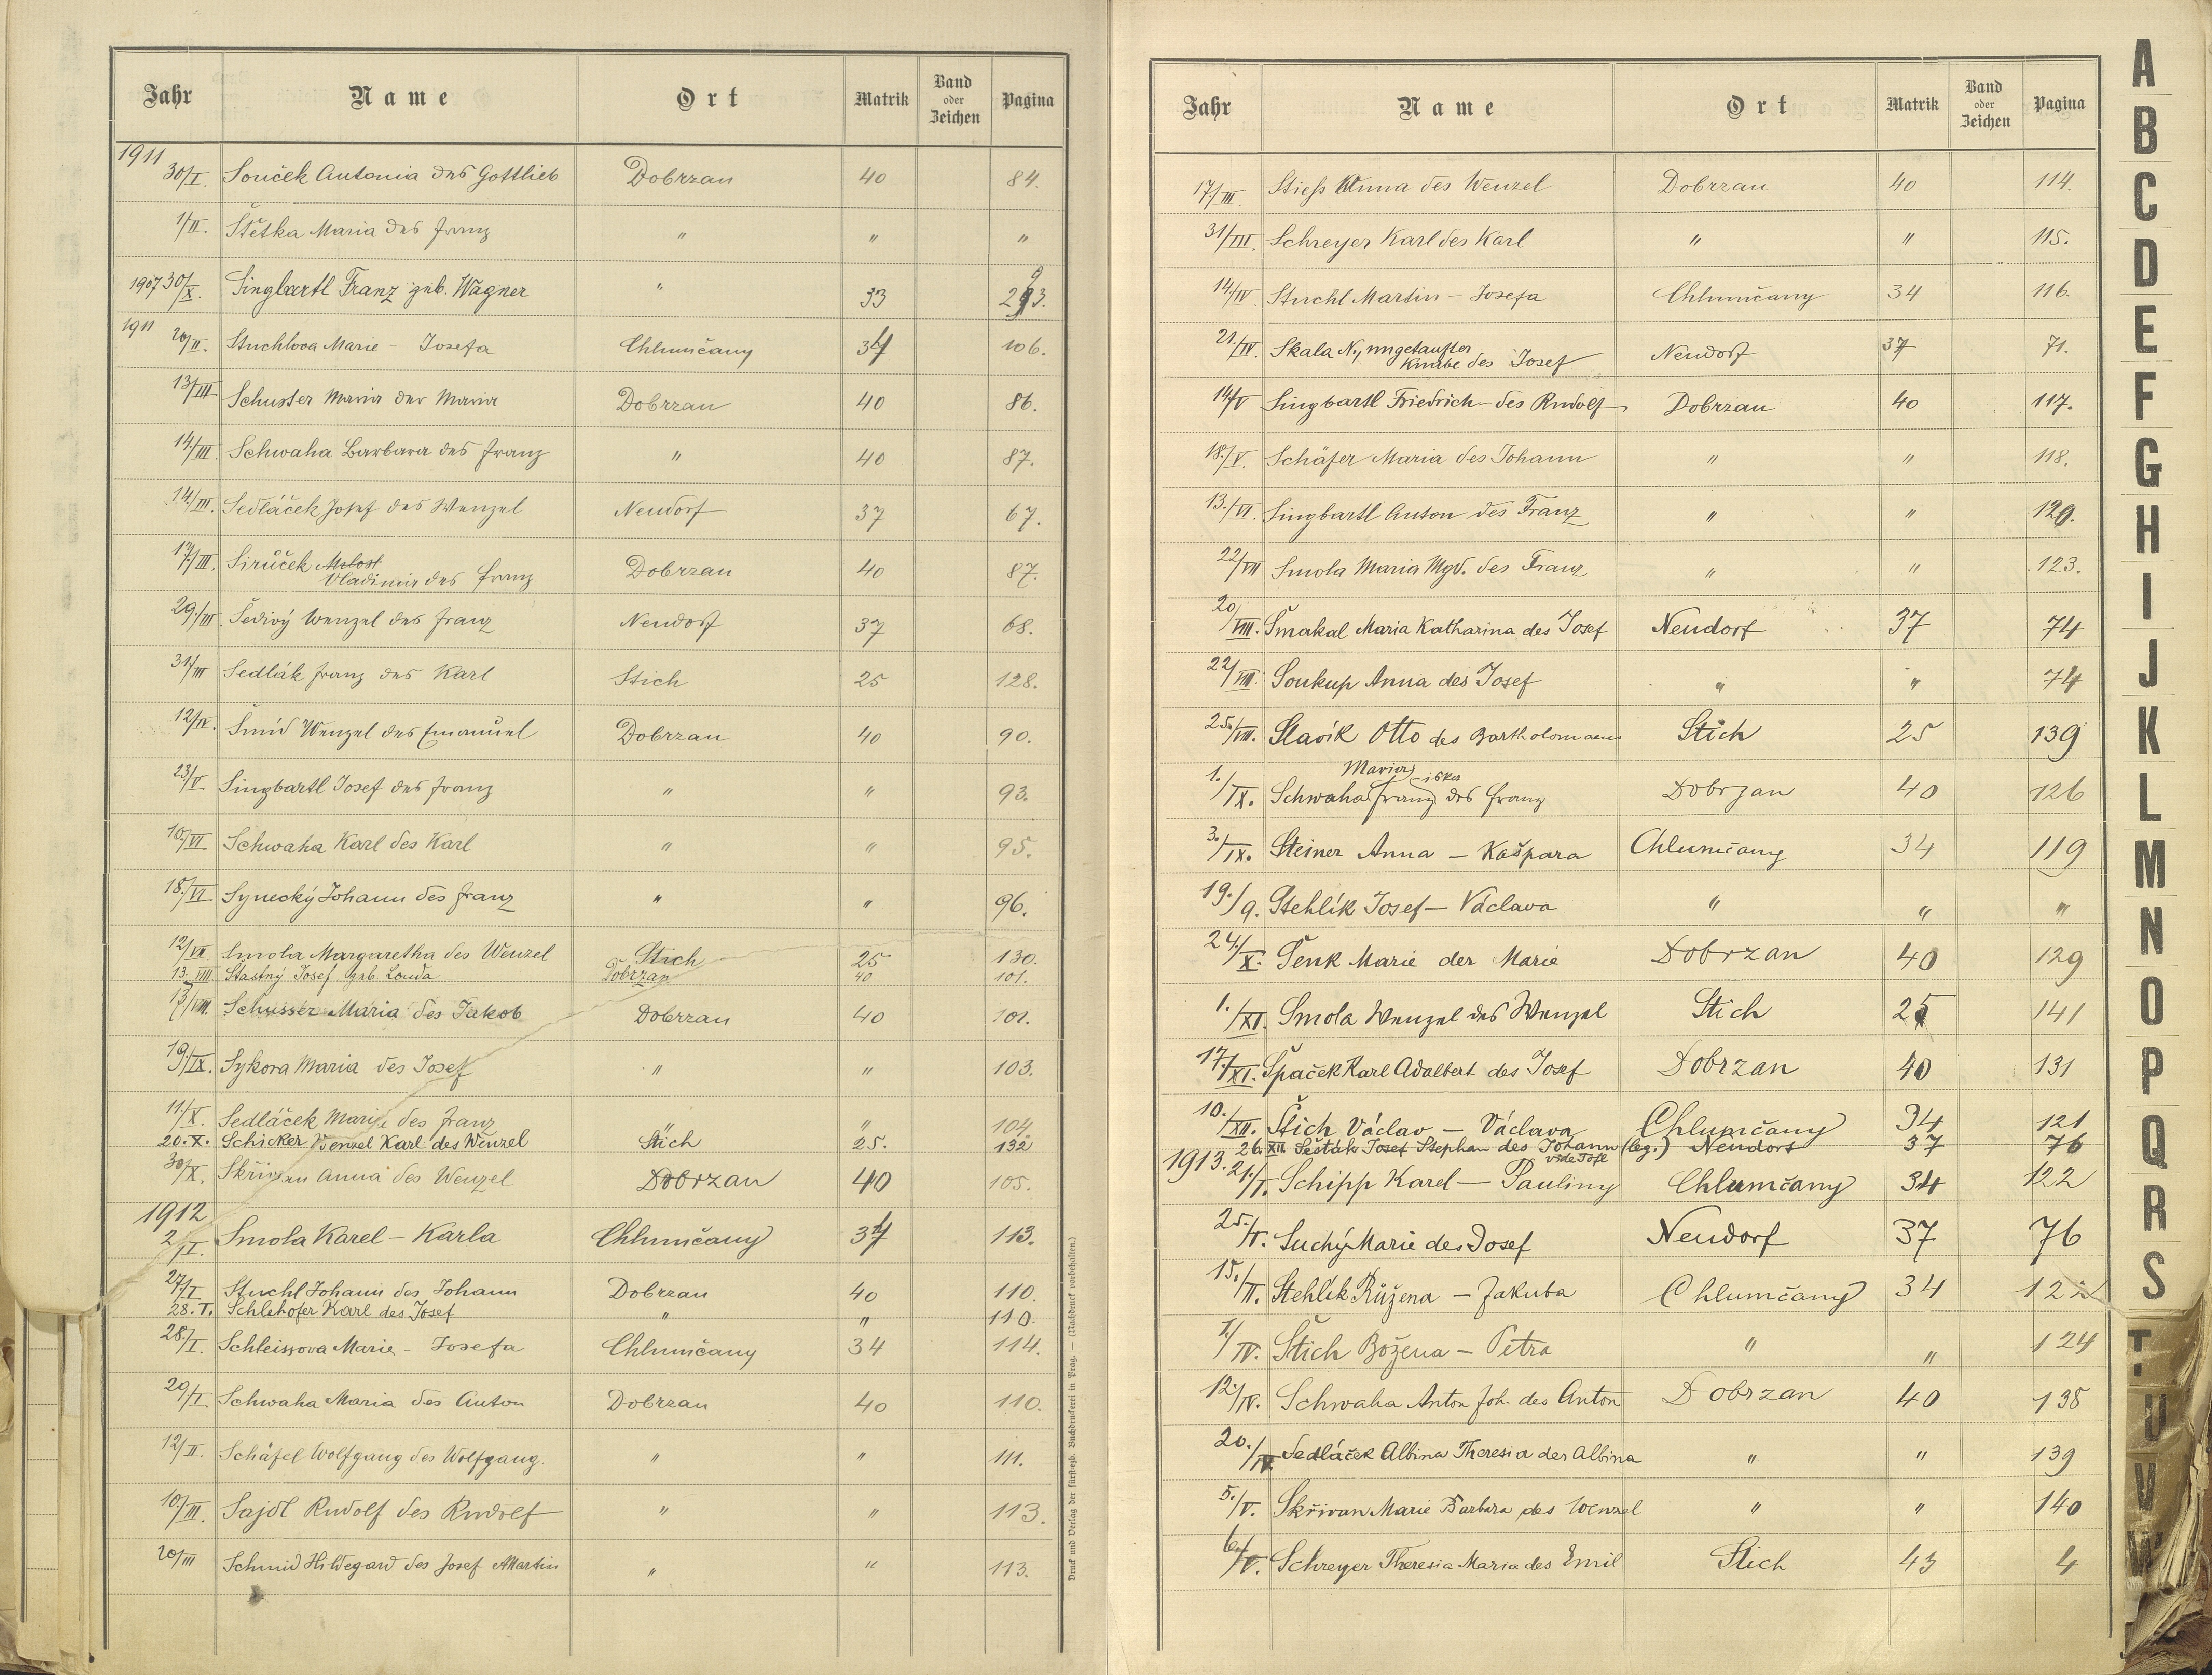 Jahr Name Ort Matrik Band oder Zeichen Pagina
1911
30/I. Souček Antonia des Gottlieb Dobrzan 40 84.
1/II. Štětka Maria des Franz " " "
1907 30/X. Singbartl Franz geb. Wagner " 33 293.
1911 20/II. Stuchlova Marie - Josefa Chlumčany 34 106.
13/III Schuster Maria der Maria Dobrzan 40 86.
14./III. Schwaha Barbara des Franz " 40 87.
14./III. Sedláček Josef des Wenzel Neudorf 37 67.
17/III. Sirůček Milost Vladimir des Franz Dobrzan 40 87.
29./III. Šedivý Wenzel des Franz Neudorf 37 68.
31/III Sedlák Franz des Karl Stich 25 128.
12/IV. Šmíd Wenzel des Emanuel Dobrzan 40 90.
23/V. Singbartl Josef des Franz " " 93.
10/VI. Schwaha Karl des Karl " " 95.
18./VI Synecký Johann des Franz " " 96.
12/VII Smola Margaretha des Wenzel Stich 25 130.
13. VIII. Stastný Josef geb. Louda Dobrzan 40 101.
17/VIII. Schusser Maria des Jakob Dobrzan 40 101.
19/IX. Sykora Maria des Josef " " 103.
11/X. Sedláček Marie des Franz " " 104
20. X. Schicker Wenzel Karl des Wenzel Stich 25. 132
30/X. Skřivan Anna des Wenzel Dobrzan 40 105.
1912
2/I. Smola Karel - Karla Chlumčany 34 113.
27/I Stuchl Johann des Johann Dobrzan 40 110.
28. I. Schlehofer Karl des Josef " " 110.
28./I. Schleissova Marie - Josefa Chlumčany 34 114.
29/I. Schwaha Maria des Anton Dobrzan 40 110.
12/II. Schäfel Wolfgang des Wolfgang. " " 111.
10/III. Sajdl Rudolf des Rudolf " " 113.
20/III Schmid Hildegard des Josef Martin " " 113.
Druck und Verlag der fürsterzb. Buchdruckerei in Prag. — (Nachdruck vorbehalten.)
Jahr Name Ort Matrik Band oder Zeichen Pagina
17/III. Stiess Anna des Wenzel Dobrzan 40 114.
31/III. Schreyer Karl des Karl " " 115.
14/IV Stuchl Martin - Josefa Chlumčany 34 116.
21./IV. Skala N., ungetaufter Knabe des Josef Neudorf 37 71.
14/V Singbartl Friedrich des Rudolf Dobrzan 40 117.
18./V. Schäfer Maria des Johann " " 118.
13./VI. Singbartl Anton des Franz " " 120.
22/VII Smola Maria Mgd. des Franz " " 123.
20/VIII. Šmakal Maria Katharina des Josef Neudorf 37 74
22/VIII. Soukup Anna des Josef " " 74
25./VIII. Slavík Otto des Bartholomaeus Stich 25 139
Maria
1./IX. Schwaha Franz des Franz Dobrzan 40 126
3./IX. Steiner Anna - Kašpara Chlumčany 34 119
19./9. Stehlík Josef - Václava " " "
24./X. Šenk Marie der Marie Dobrzan 40 129
1./XI. Smola Wenzel des Wenzel Stich 25 141
17./XI. Špaček Karl Adalbert des Josef Dobrzan 40 131
10./XII. Štich Václav - Václava Chlumčany 34 121
26. XII. Šesták Josef Stephan des Johann (leg.) Neudorf 37 76
1913. 21/I. Schipp Karel - Pauliny Chlumčany 34 122
25./I. Suchý Marie des Josef Neudorf 37 76
15./II. Stehlík Růžena - Jakuba Chlumčany 34 122
1/IV. Štich Božena - Petra " " 124
12./IV. Schwaha Anton Joh. des Anton Dobrzan 40 138
20./IV Sedláček Albina Theresia der Albina " " 139
5./V. Skřivan Marie Barbara des Wenzel " " 140
6./V. Schreyer Theresia Maria des Emil Stich 43 4
A
B
C
D
E
F
G
H
I
J
K
L
M
N
O
P
Q
R
S
T
U
V
W